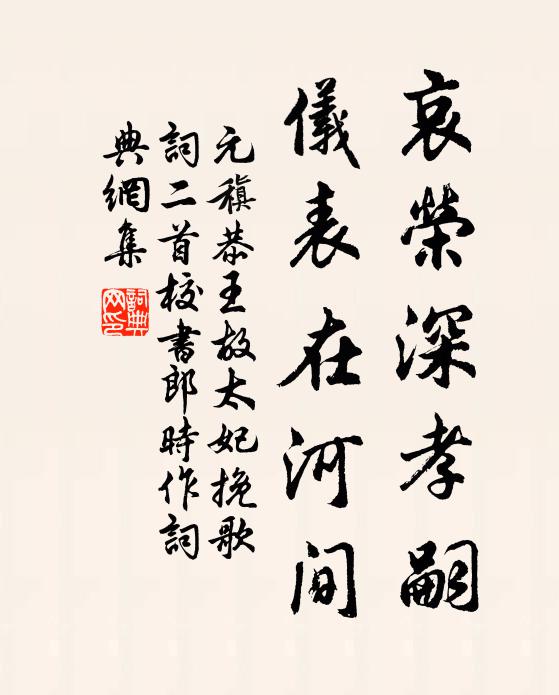 哀榮深孝嗣
儀表在河間
元稹恭王故太妃挽歌
詞二首校書郎時作詞
典網集
詞典网印